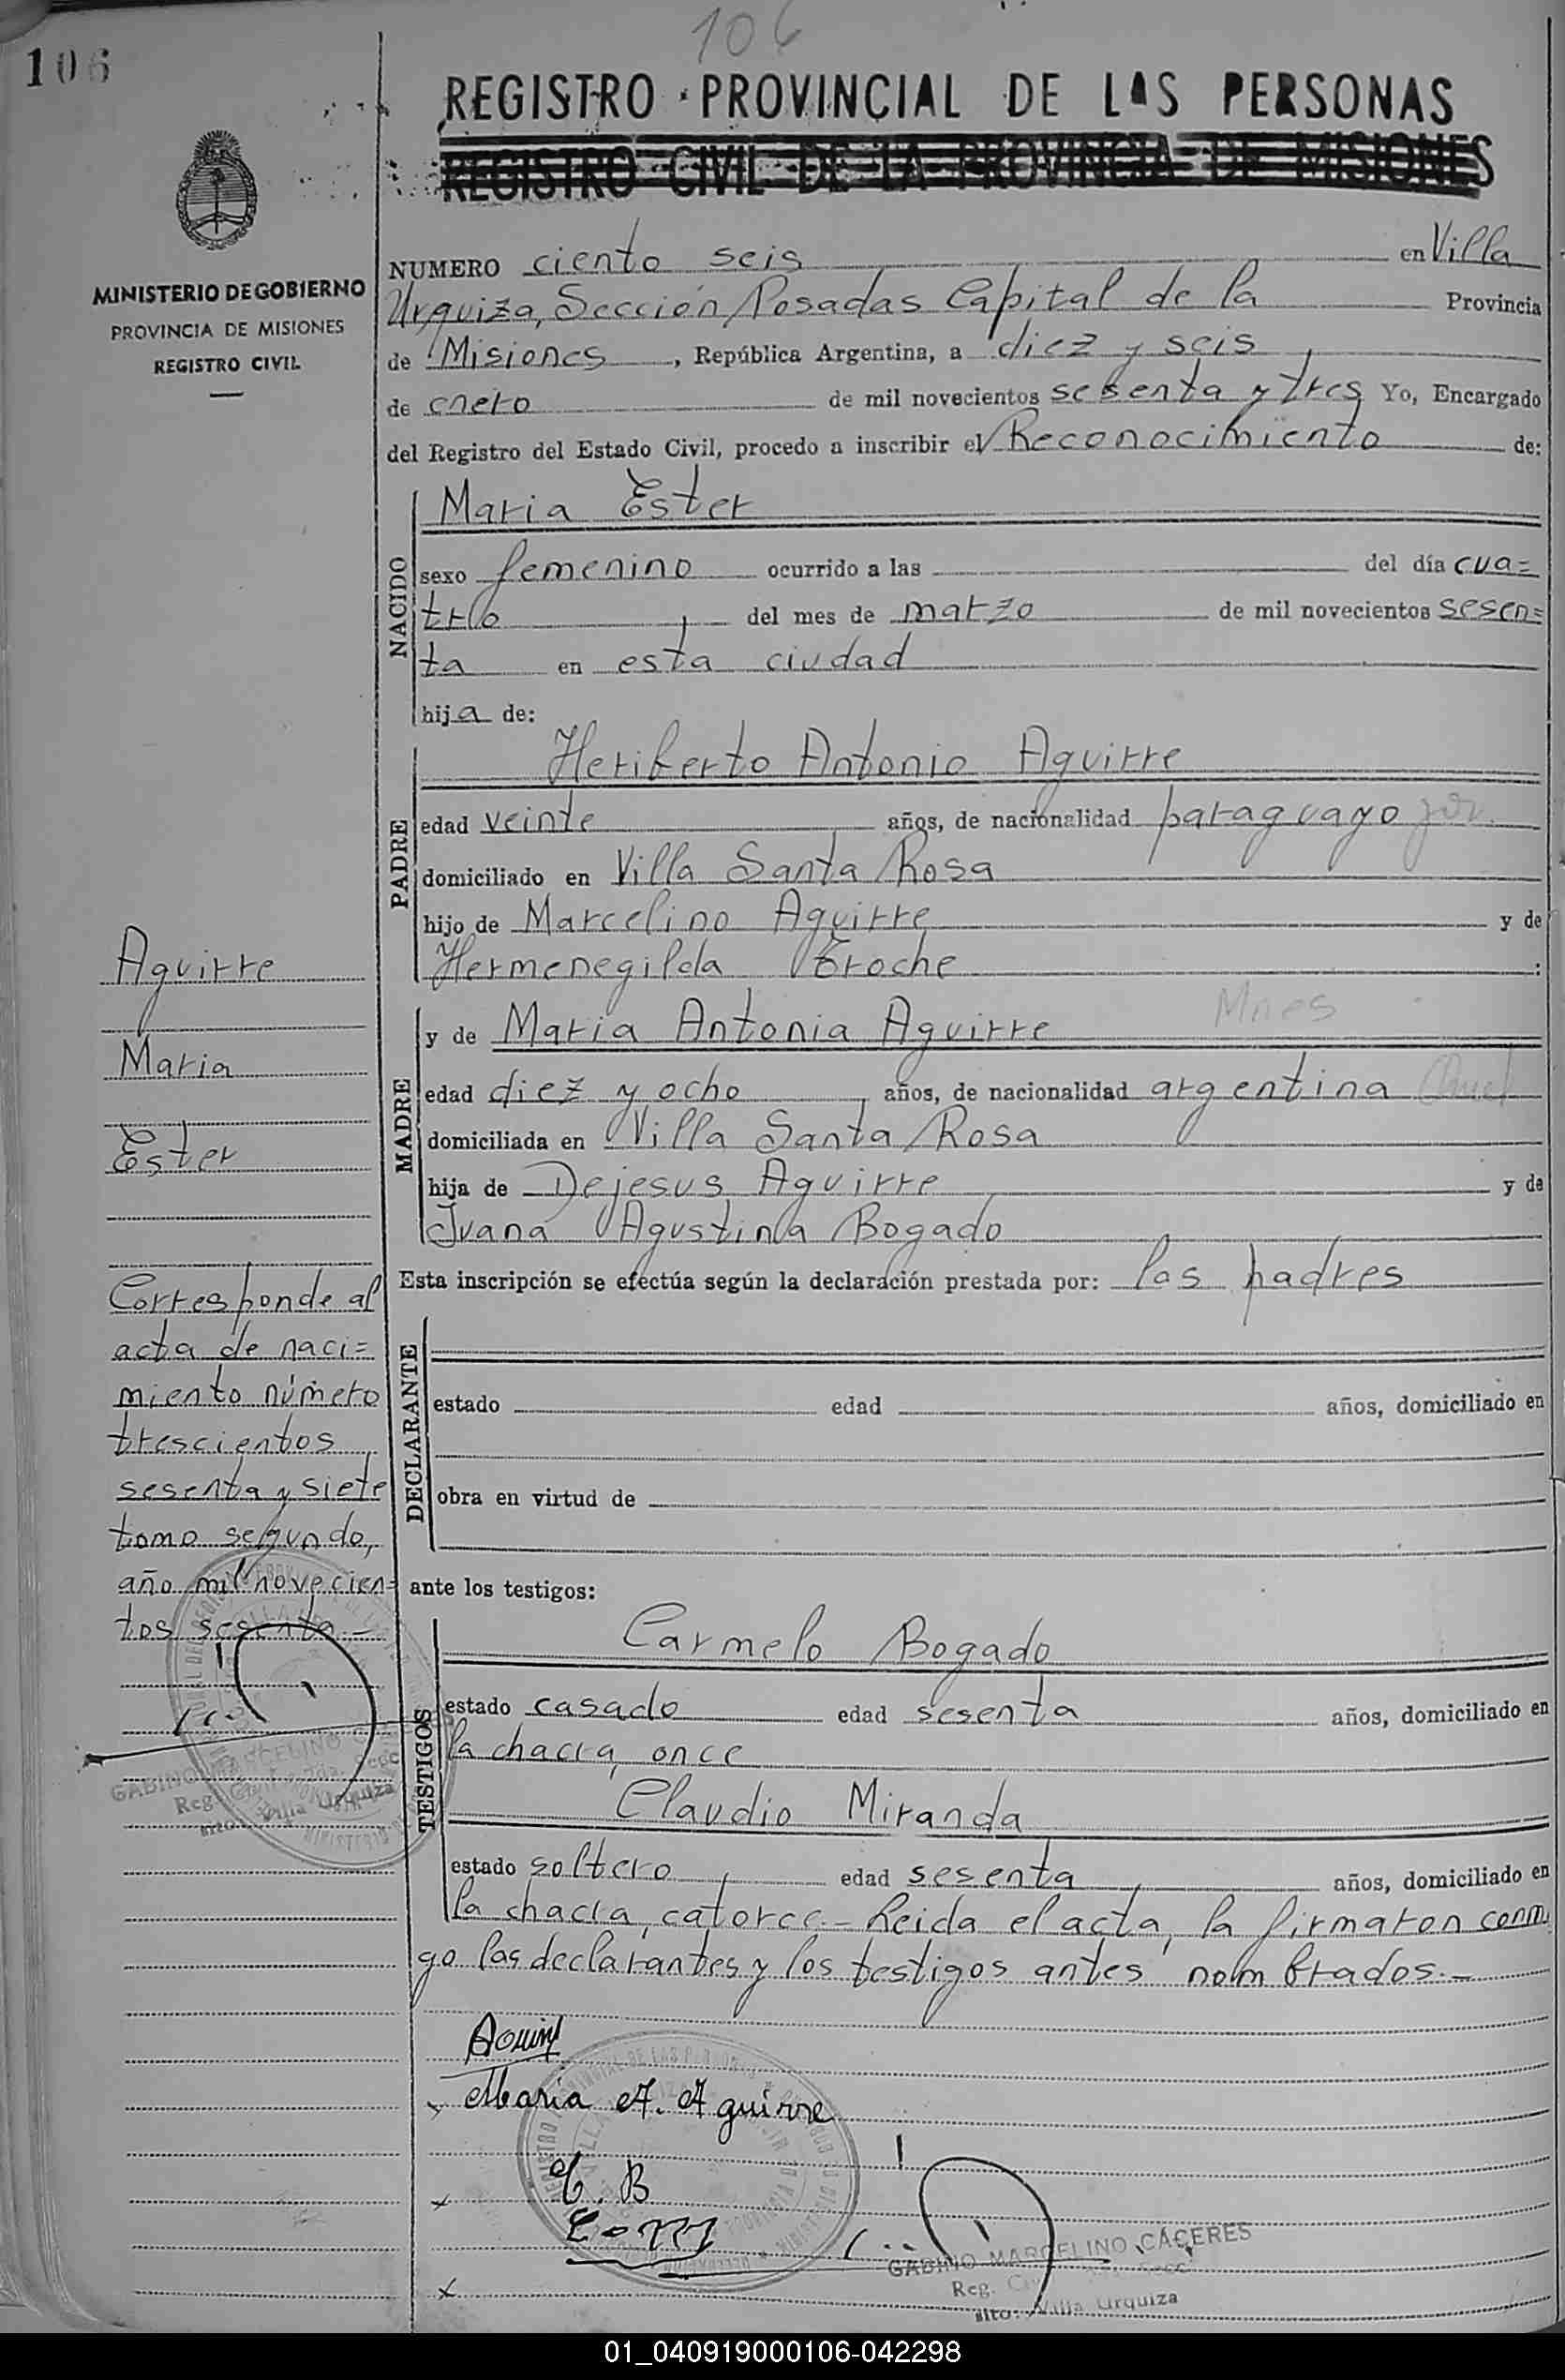 106
106
REGISTRO PROVINCIAL DE LAS PERSONAS
REGISTRO CIVIL DE LA PROVINCIA DE MISIONES
MINISTERIO DE GOBIERNO
PROVINCIA DE MISIONES
REGISTRO CIVIL
NUMERO ciento seis en Villa
Urquiza, Sección Posadas Capital de la Provincia
de Misiones, República Argentina, a diez y seis
de enero de mil novecientos sesenta y tres Yo, Encargado
del Registro del Estado Civil, procedo a inscribir el Reconocimiento de:
NACIDO
Maria Ester
sexo femenino ocurrido a las del día cua=
tro del mes de marzo de mil novecientos sesen=
ta en esta ciudad
hija de:
PADRE
Heriberto Antonio Aguirre
edad veinte años, de nacionalidad paraguayo
domiciliado en Villa Santa Rosa
hijo de Marcelino Aguirre y de
Hermenegilda Eroche :
MADRE
Mnes
y de Maria Antonia Aguirre
edad diez y ocho años, de nacionalidad argentina
domiciliada en Villa Santa Rosa
hija de Dejesus Aguirre y de
Juana Agustina Bogado
Esta inscripción se efectúa según la declaración prestada por: los padres
DECLARANTE
estado edad años, domiciliado en
obra en virtud de
ante los testigos:
TESTIGOS
Carmelo Bogado
estado casado edad sesenta años, domiciliado en
la chacra once
Claudio Miranda
estado soltero edad sesenta años, domiciliado en
la chacra, catorce.- Leida el acta, la firmaron conmi
go los declarantes y los testigos antes nombrados.-
Aguirre
Maria
Ester
Corresponde al
acta de naci=
miento número
trescientos
sesenta y siete
tomo segundo,
año mil novecien=
tos sesenta.-
GABINO MARCELINO
Reg.
Villa Urquiza
Maria A. Aguirre
C. B
C-M
GABINO MARCELINO CÁCERES
Reg.
Villa Urquiza
01_040919000106-042298